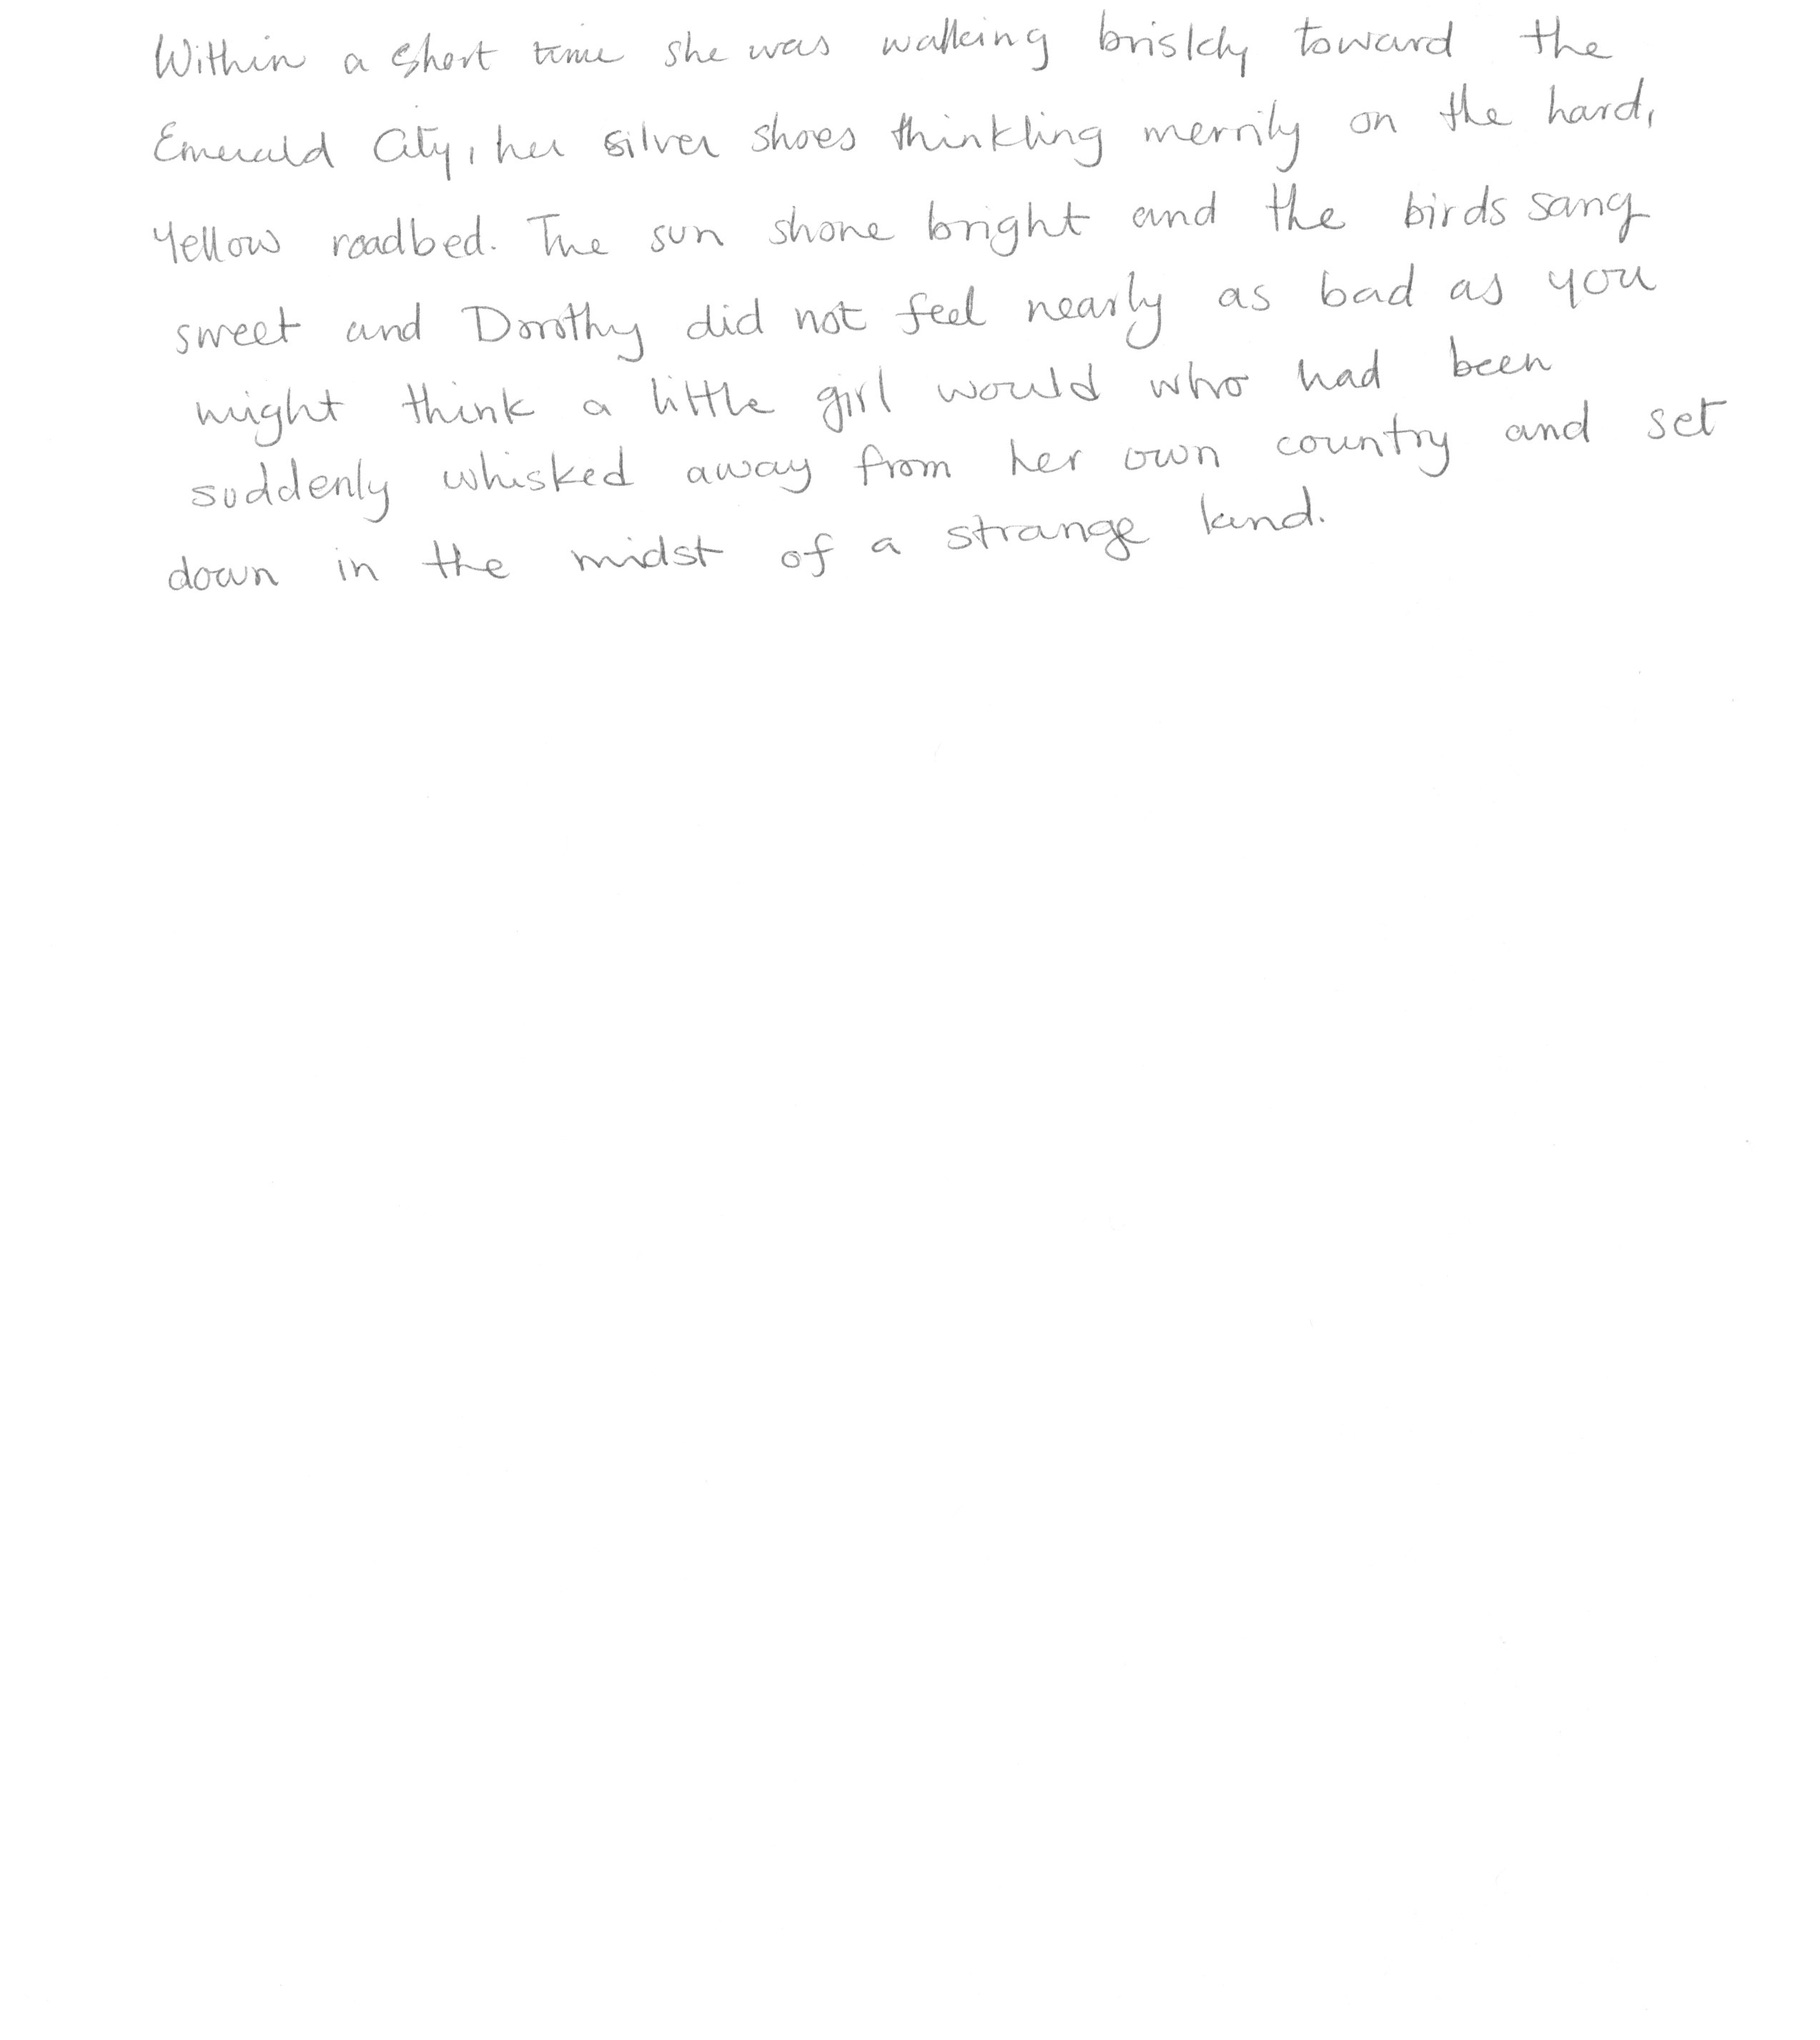 Within a short time she was walking briskly toward the
Emerald City, her silver shoes thinkling merrily on the hard,
Yellow roadbed. The sun shone bright and the birds sang
sweet and Dorothy did not feel nearly as bad as you
might think a little girl would who had been
suddenly whisked away from her own country and set
down in the midst of a strange land.